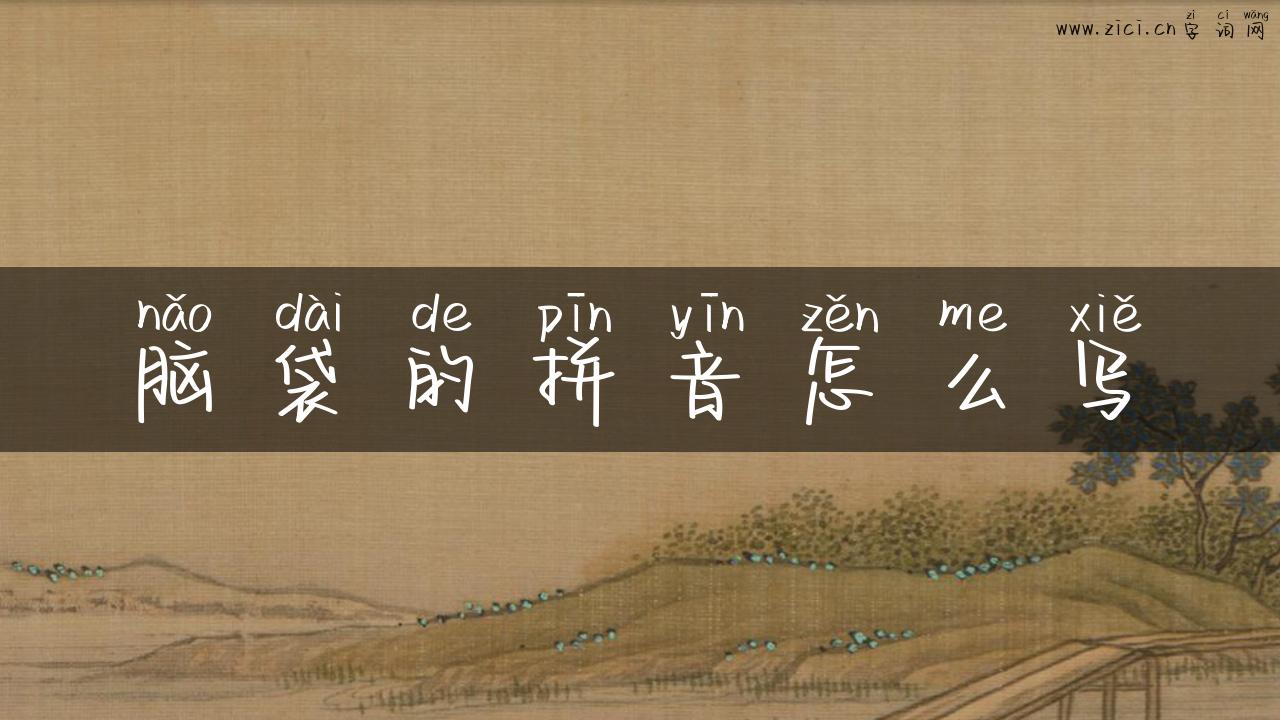 zì cí wǎng
www.zici.cn字词网
nǎo dài de pīn yīn zěn me xiě
脑袋的拼音怎么写